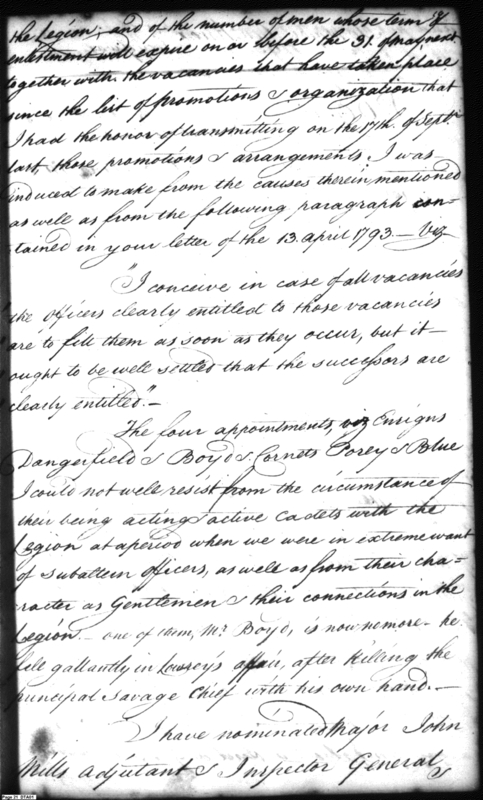 the Legion, and of the number of men whose term of
enlistment will expire on or before the 31. of may next
together with the vacancies that have taken place
since the list of promotions & organization that
I had the honor of transmitting on the 17th. of Septr.
last, those promotions & arrangements I was
induced to make from the causes therein mentioned
as well as from the following paragraph con-
-tained in your letter of the 13. april 1793 — Viz
"I conceive in case of all vacancies
the officers clearly entitled to those vacancies
are to fill them as soon as they occur, but it —
ought to be well settled that the successors are
clearly entitled." —
The four appointments, viz Ensigns
Dangerfield & Boyd & Cornets Posey & Blue
I could not well resist from the circumstance of
their being acting & active Cadets with the
Legion at a period when we were in extreme want
of Subaltern officers, as well as from their cha=
racter as Gentlemen & their connections in the
Legion. — one of them, Mr. Boyd, is now no more - he
fell gallantly in Lowrey's affair, after killing the
principal Savage Chief with his own hand. —
I have nominated Major John
Mills adjutant & Inspector General,